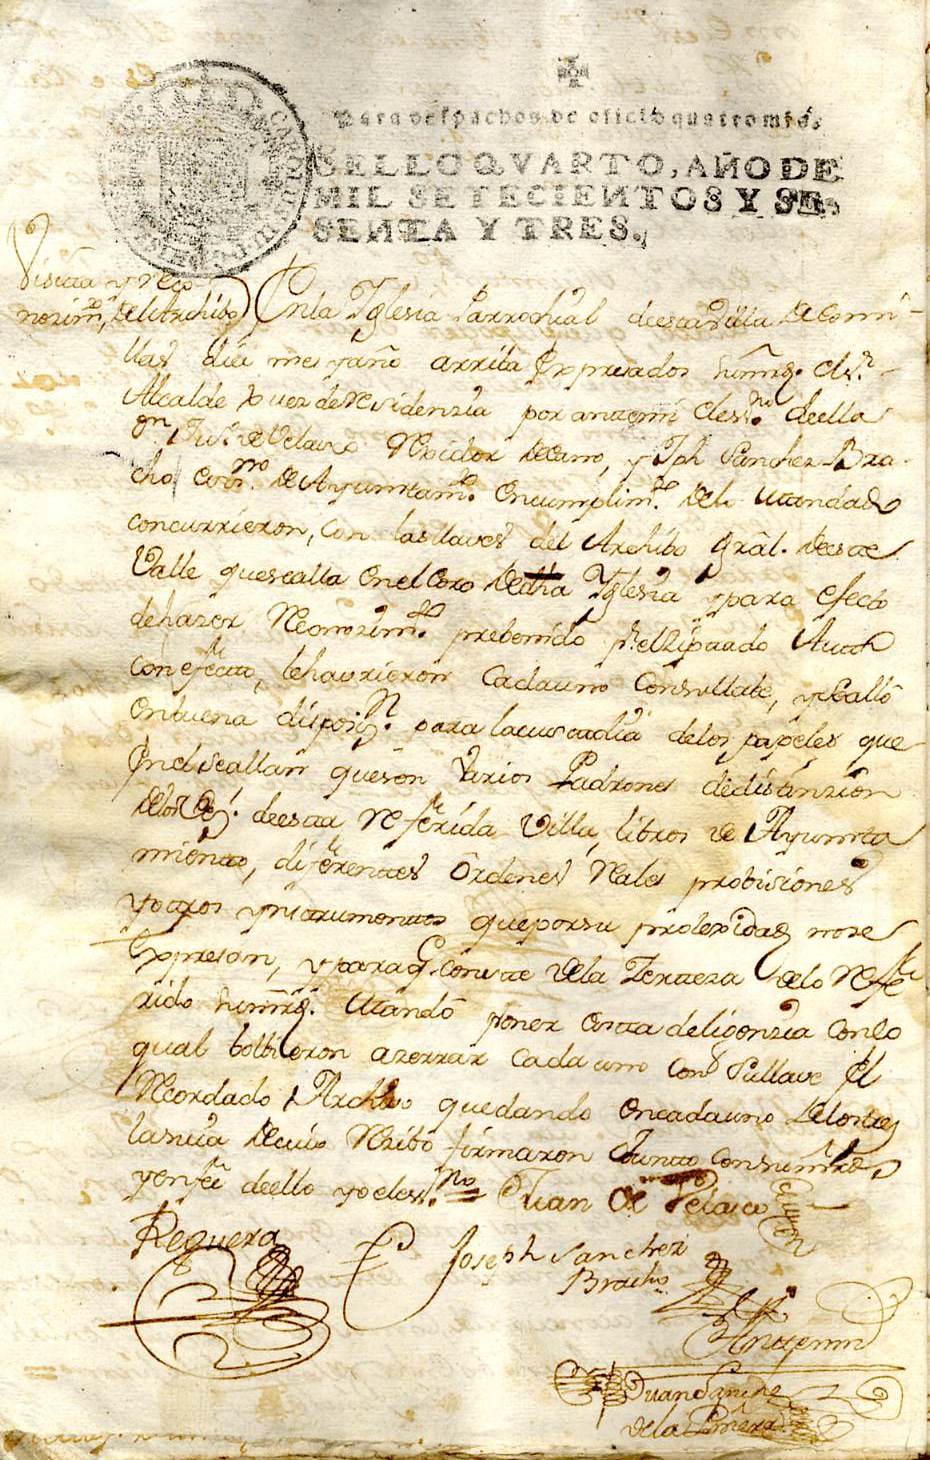 Para despachos de oficio quatro mrs.
SELLO QVARTO, AÑO DE
MIL SETECIENTOS Y SE-
SENTA Y TRES.
Visita y reco-
nozimto, del Archibo
En la Yglesia Parrochial de esta Villa de Comi-
llas dia mes y año arriba Expresados el Sr.
Alcalde Juez de residenzia por ante mi el essno. de ella
Dn. Juo. de Velasco Rexidor Decano, y Jph Sanchez Bra-
cho, essno. de Ayuntamto. en cumplimto. del Mandado
concurrieron, con las llaves del Archibo Gräl. de este
Valle que se alla en el Coro de dha Yglesia y para efecto
de hazer Reconozimto. prebenido pr. el Auto
con efecto, le havrieron cada uno con su llabe, y se alló
en buena disposizn. para la custodia de los papeles que
en el se allan que son varios Padrones de distinzion
de los de esta referida Villa, libros de Ayunta
miento, diferentes Ordenes Reales probisiones
y otros ynstrumentos que por su prolexidad no se
Expresan, y para q. conste de la Zerteza de lo refe
rido Mandó poner esta deligenzia con lo
qual bolbieron a zerrar cada uno con su llave el
Recordado Archivo quedando en cada uno de los tres
la suia de cuio Rezibo firmaron Junto con su mrd.
y en fee de ello yo el essno. = Juan de Velasco
Reguera
Joseph Sanchez
Bracho
Ante mi
Juan Sanchez
de la